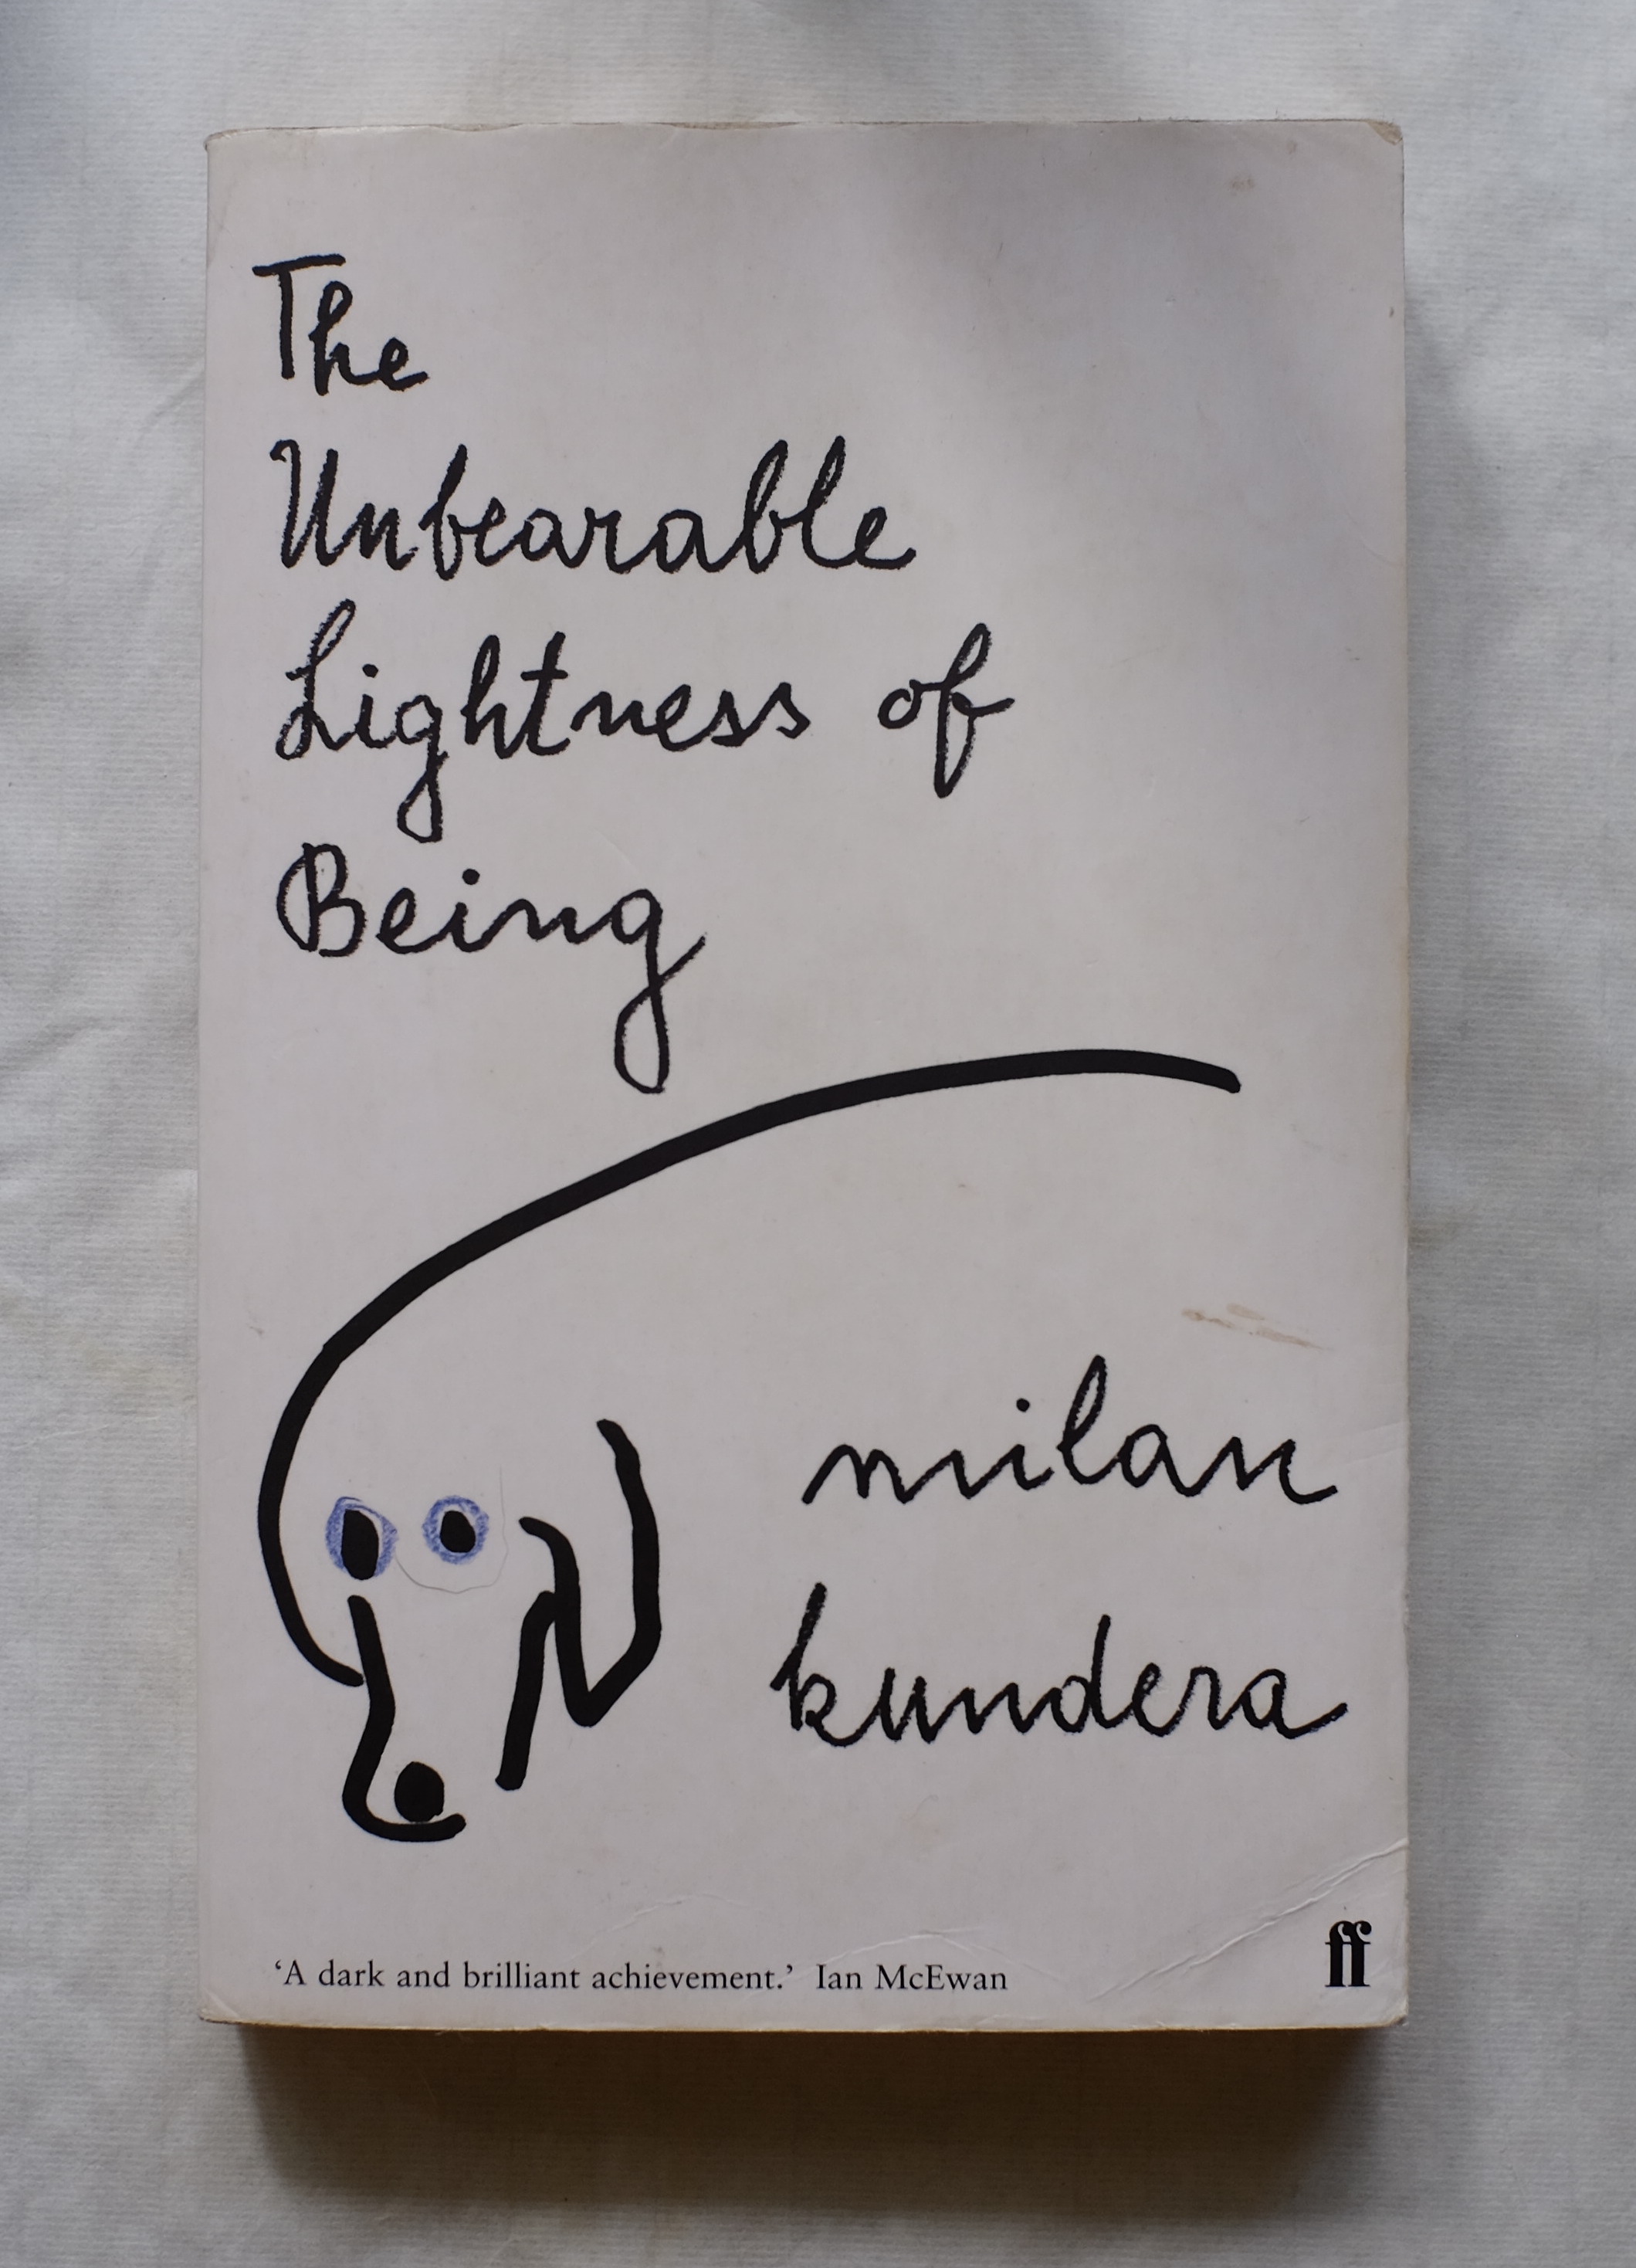 The
Unbearable
Lightness of
Being
milan
kundera
‘A dark and brilliant achievement.’ Ian McEwan
ff